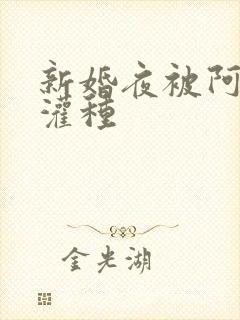 新婚夜被阿
灌种
金光湖